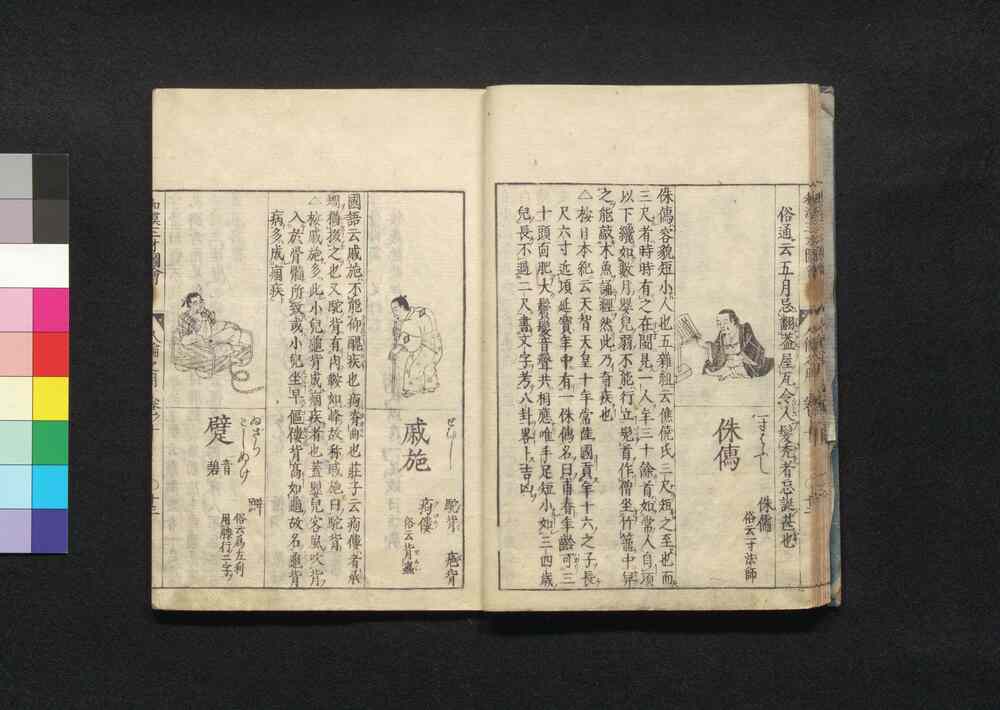 俗通云五月忌翻蓋屋瓦令人髮禿者忌誕甚也
侏儒
俗云一寸法師
侏儒容貌短小人也五雜組云僬僥氏三尺短之至也而
三尺者時時有之在閩見一人年三十餘首如常人自項
以下纔如數月嬰兒弱不能行立髡首作僧坐竹籠中舁
之能敲木魚誦經然此乃奇疾也
△按日本紀云天智天皇十年常陸國貢年十六之子長
尺六寸近頃延寶年中有一侏儒名曰甫春年齡可三
十頭面肥大鬚鬢音聲共相應唯手足短小如三四歲
兒長不過二尺書文字考八卦畧卜吉凶
戚施
せむし
駝背
龜背
痀僂
國語云戚施不能仰醜疾也痀脊曲也莊子云痀僂者承
蜩猶掇之也又駝背有肉鞍如峰故称戚施曰駝背
△按戚施多此小兒龜背成痼疾者也蓋嬰兒客風吹脊
入於骨髓所致或小兒坐早傴僂背高如龜故名龜背
病多成痼疾
躄
音碧
ゐざり
こしぬけ
俗云爲左利
用膝行二字
和漢三才圖會
人倫之用